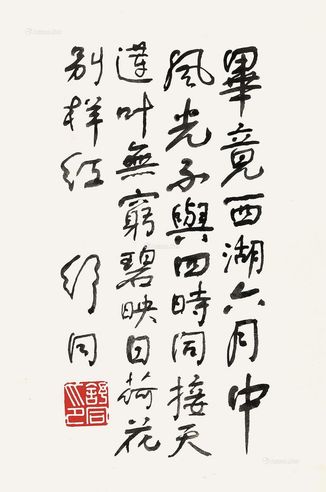 畢竟西湖六月中
風光不與四時同接天
蓮叶無窮碧映日荷花
別样红 舒同
舒同之印